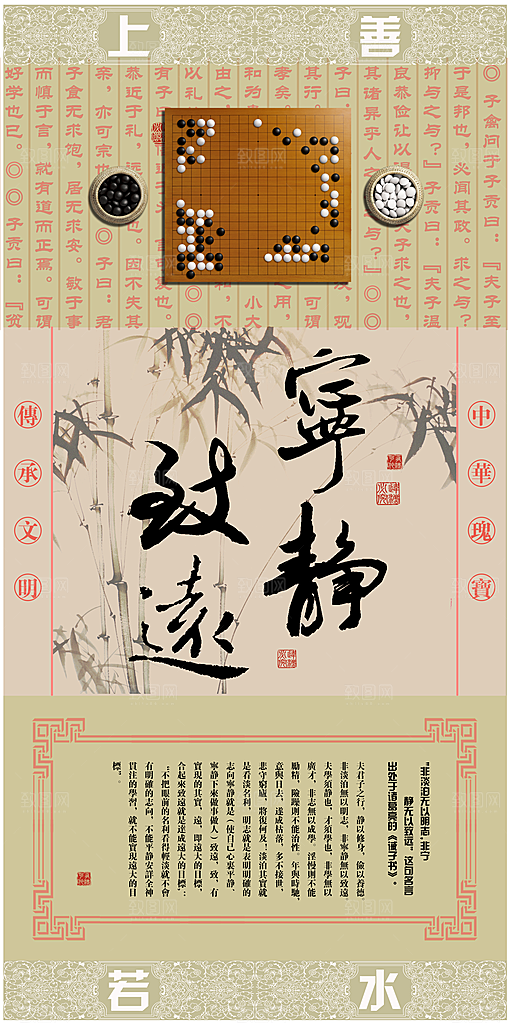 上善
◎子禽问于子贡曰：『夫子至
于是邦也，必闻其政。求之与？
抑与之与？』子贡曰：『夫子温
良恭俭让以得 子求之也，
其诸异乎人之 与？』◎◎
子曰： 观
其行
孝矣。 之用，
和为 小大
由之 和，不
以礼
有子曰
恭近于礼，远 也。因不失其
亲，亦可宗也 ◎子曰：君
子食无求饱，居无求安。敏于事
而慎于言，就有道而正焉。可谓
好学也已。◎◎子贡曰：『贫
中華瑰寶
寧靜
致遠
傳承文明
"非淡泊无以明志，非宁
静无以致远。"这句名言
出处于诸葛亮的《诫子书》。
夫君子之行，静以修身，儉以養德
非淡泊無以明志，非寧静無以致遠。
夫學須静也，才須學也，非學無以
廣才，非志無以成學。淫慢則不能
勵精，險躁則不能治性。年與時馳，
意與日去，遂成枯落，多不接世，
悲守窮廬，將復何及！淡泊其實就
是看淡名利，明志就是表明明確的
志向寧静就是（使自己心裏平静，
寧静下來做事做人）致遠，致，有
實現的其實，遠，即遠大的目標，
合起來致遠就是達成遠大的目標：
"不把眼前的名利看得輕淡就不會
有明確的志向，不能平静安詳全神
貫注的學習，就不能實現遠大的目
標"。
若水